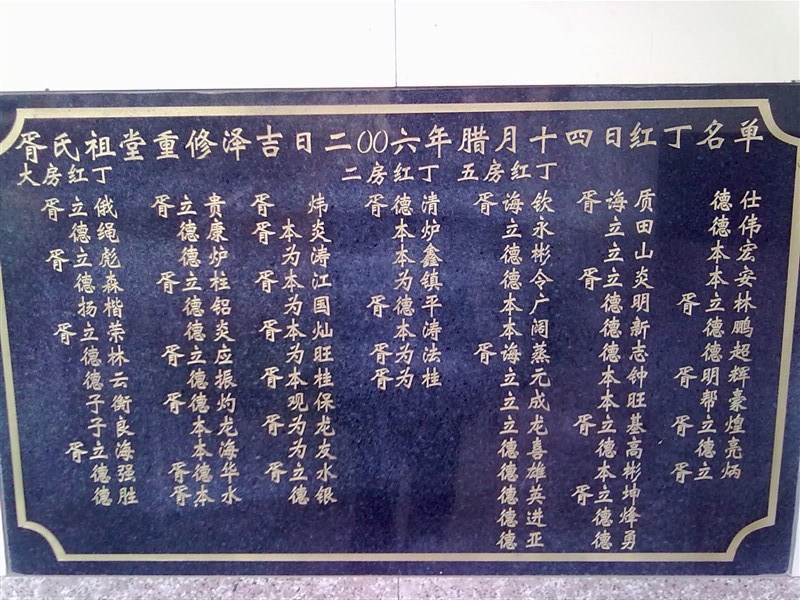 胥氏祖堂重修泽吉日二00六年腊月十四日红丁名单
大房红丁
胥立俄
德绳
胥立彪
德森
扬楷
胥立荣
德林
德云
子衡
子良
胥立海
德强
德胜
胥立贵
德康
德炉
胥立柱
德铝
德炎
胥立应
德振
胥德灼
本龙
本海
胥德华
胥本水
胥炜
胥本炎
为涛
胥本江
为国
胥本灿
为旺
胥本桂
观保
胥为龙
为友
胥立水
德银
二房红丁
胥德清
本炉
本鑫
为镇
胥德平
本涛
胥为法
胥为桂
五房红丁
胥海钦
立永
德彬
德令
本广
本阔
胥海蒸
立元
立成
立龙
德喜
德雄
德英
德进
德亚
胥海质
立田
立山
胥立炎
德明
德新
德志
本钟
本旺
胥立基
德高
本彬
胥立坤
德烽
德勇
德仕
德伟
本宏
本安
胥立林
德鹏
德超
胥明辉
帮豪
胥立煌
德亮
胥立炳